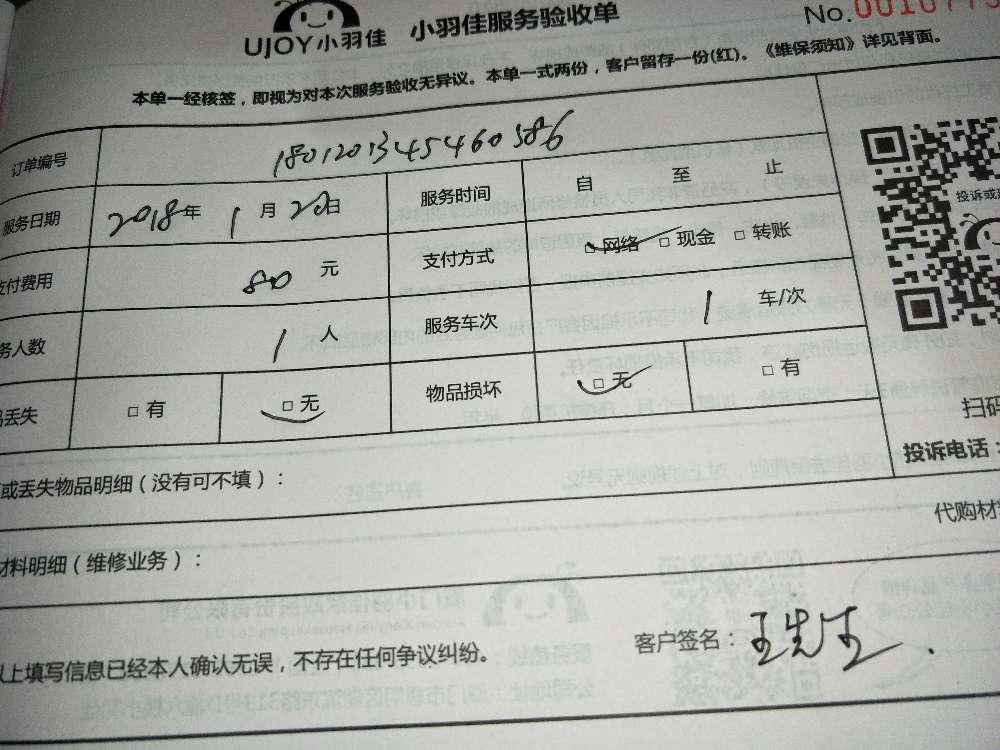 UJOY小羽佳 小羽佳服务验收单 No.
本单一经核签，即视为对本次服务验收无异议。本单一式两份，客户留存一份(红)。《维保须知》详见背面。
订单编号 1801201345460586
服务日期 2018年 1月 20日 服务时间 自 至 止
支付费用 80 元 支付方式 □ 网络 □ 现金 □ 转账
务人数 1 人 服务车次 1 车/次
丢失 □ 有 □ 无 物品损坏 □ 无 □ 有
投诉或
扫码
投诉电话：
或丢失物品明细（没有可不填）：
代购材
材料明细（维修业务）：
以上填写信息已经本人确认无误，不存在任何争议纠纷。 客户签名：王先生